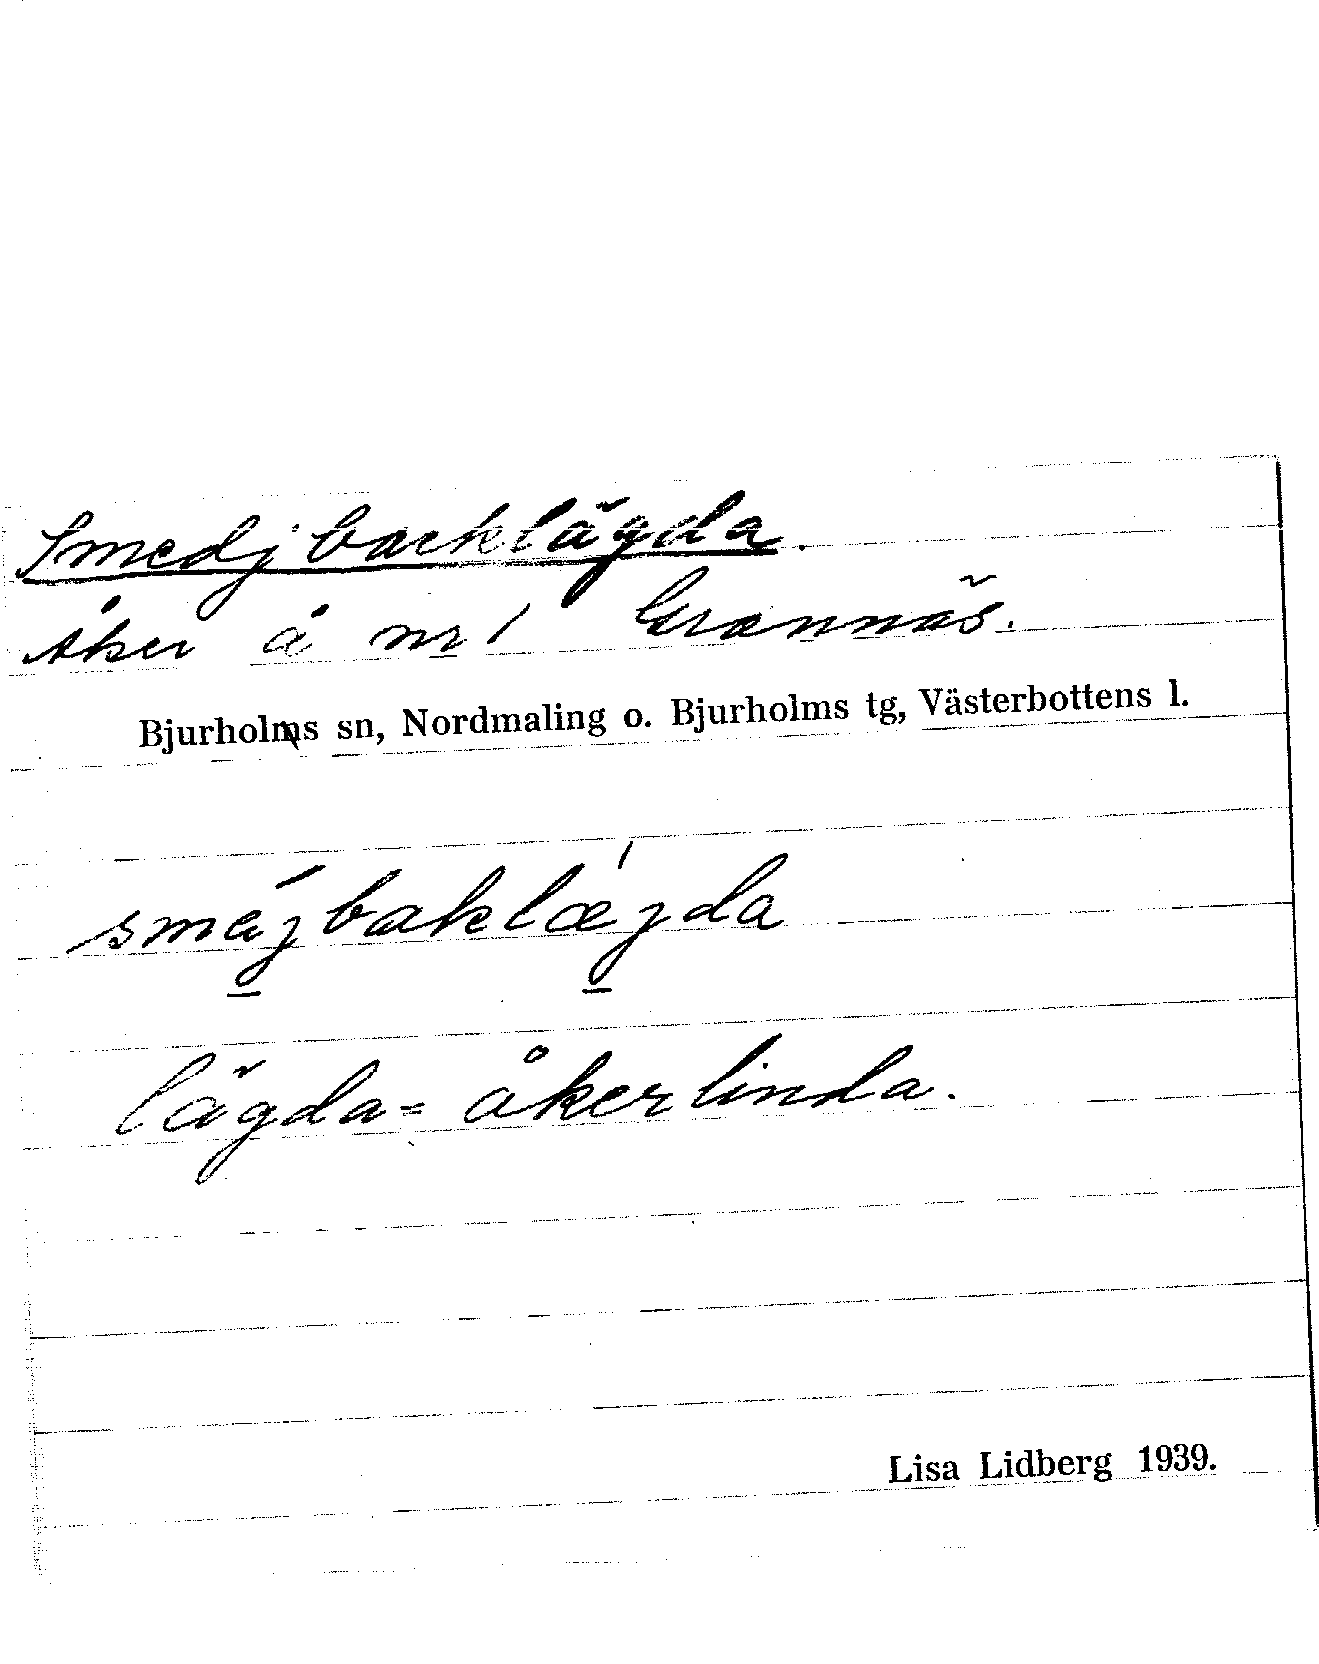 Smedjbacklägda.
Åker å nr 1 Grannäs.
Bjurholms sn, Nordmaling o. Bjurholms tg, Västerbottens l.
smejbaklæjda
lägda = åkerlinda.
Lisa Lidberg 1939.